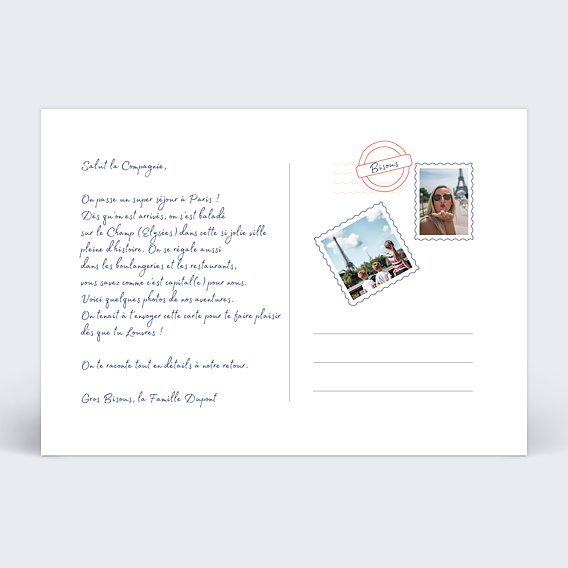 Salut la Compagnie,
On passe un super séjour à Paris !
Dès qu'on est arrivés, on s'est baladé
sur le Champ (Elysées) dans cette si jolie ville
pleine d'histoire. On se régale aussi
dans les boulangeries et les restaurants,
vous savez comme c'est capital(e) pour nous.
Voici quelques photos de nos aventures.
On tenait à t'envoyer cette carte pour te faire plaisir
dès que tu Louvres !
On te raconte tout en détails à notre retour.
Gros Bisous, la Famille Dupont
Bisous